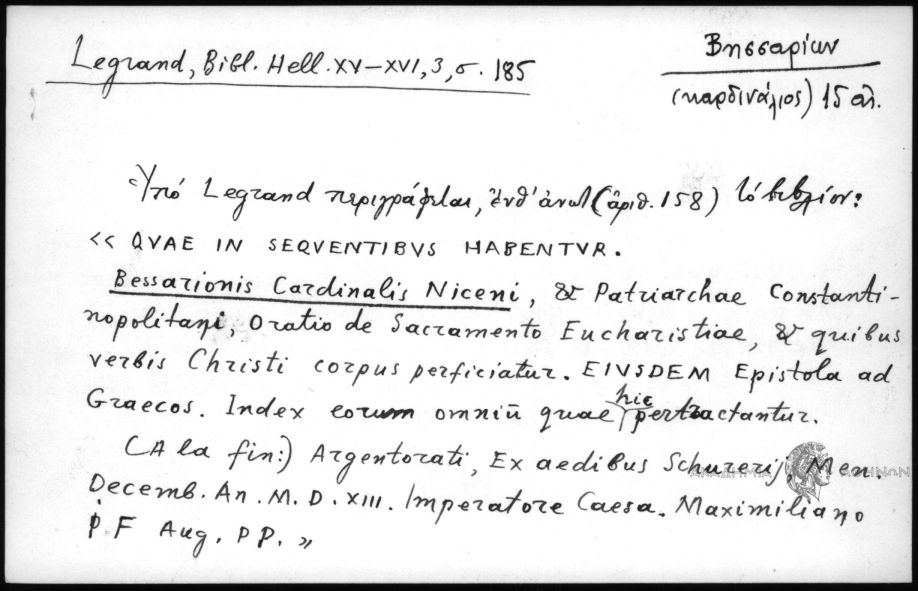 Legrand, Bibl. Hell. XV–XVI, 3, σ. 185
Βησσαρίων
(καρδινάλιος) 15 αἰ.
Ὑπό Legrand περιγράφεται, ἐνθ' ἀνωτ. (ἀριθ. 158) τό βιβλίον:
<< QVAE IN SEQVENTIBVS HABENTVR.
Bessarionis Cardinalis Niceni, & Patriarchae Constanti-
nopolitani, Oratio de Sacramento Eucharistiae, & quibus
verbis Christi corpus perficiatur. EIVSDEM Epistola ad
Graecos. Index eorum omniū quae hic pertractantur.
(A la fin:) Argentorati, Ex aedibus Schurerij, Men.
Decemb. An. M. D. XIII. Imperatore Caesa. Maximiliano
P F Aug. PP. »
ΑΚΑΔΗΜΙΑ ΑΘΗΝΩΝ